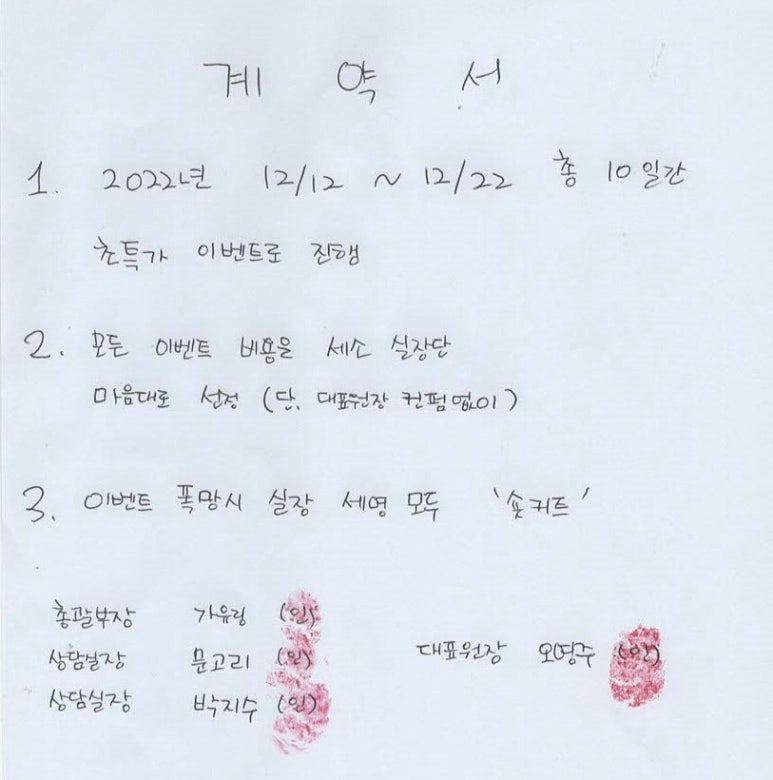 계 약 서
1. 2022년 12/12 ~ 12/22 총 10일간
초특가 이벤트로 진행
2. 모든 이벤트 비용을 세소 실장단
마음대로 선정 (단, 대표원장 컨펌없이)
3. 이벤트 폭망시 실장 세명 모두 '숏커트'
총괄부장 가유링 (인)
상담실장 문고리 (인)
대표원장 오명주 (인)
상담실장 박지수 (인)